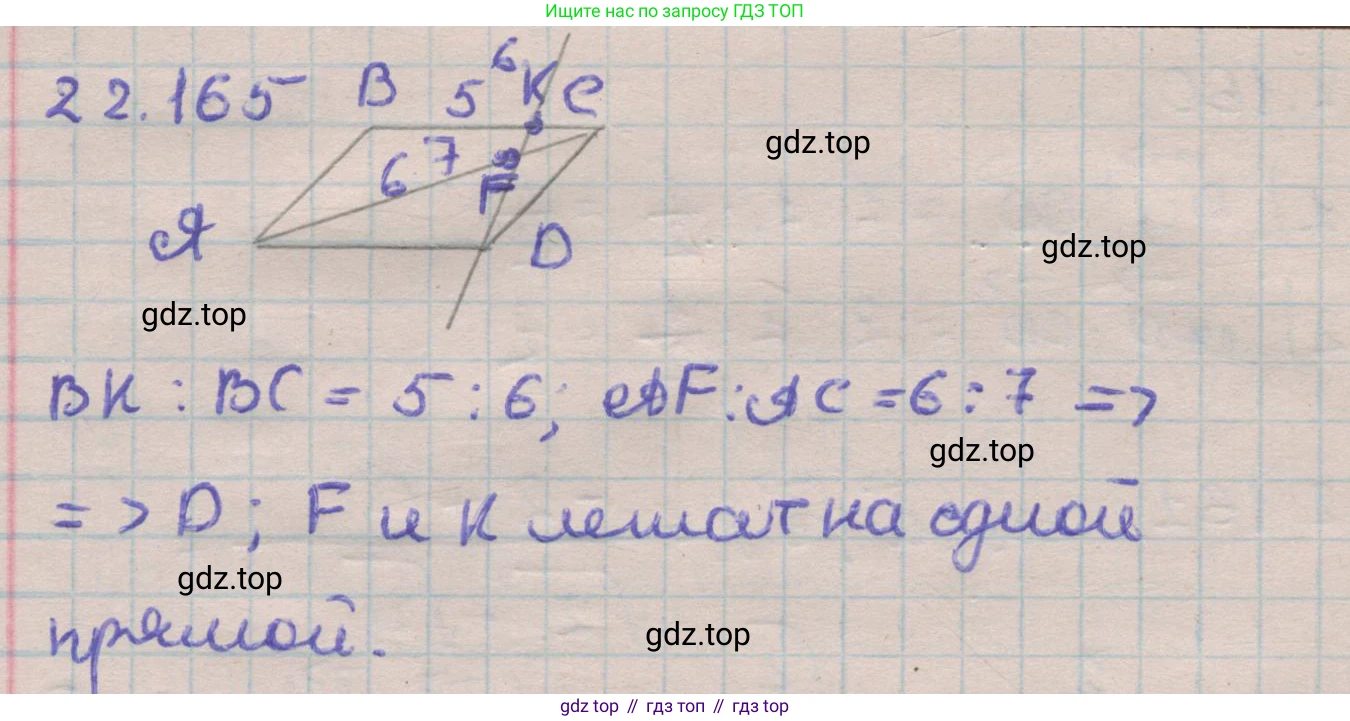 Ищите нас по запросу ГДЗ ТОП
22.165 B 5 6 K C
gdz.top
6 7 F
A D
gdz.top
gdz.top
BK : BC = 5 : 6; AF : AC = 6 : 7 =>
gdz.top
=> D; F и K лежат на одной
gdz.top
прямой.
gdz.top
gdz top // гдз топ // гдз top